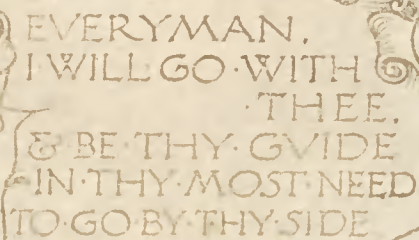 EVERYMAN,
I·WILL GO·WITH
·THEE.
& BE·THY·GVIDE
IN·THY·MOST·NEED
TO·GO·BY·THY·SIDE